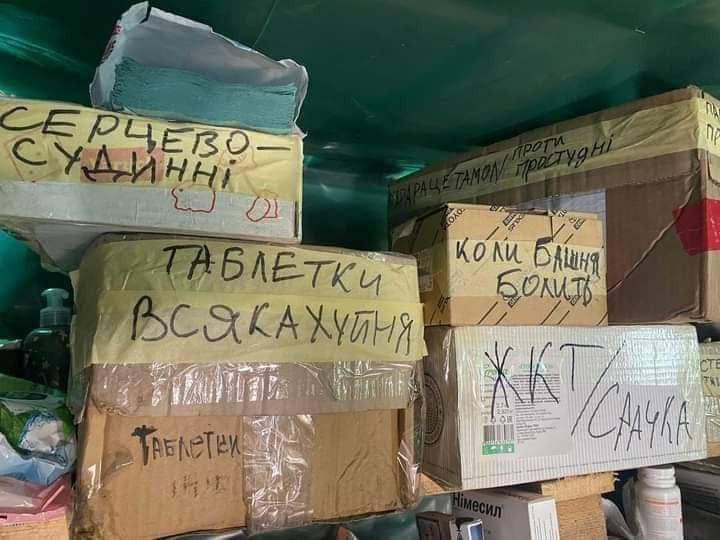 СЕРЦЕВО-
СУДИННІ
ТАБЛЕТКИ
ВСЯКА ХУЙНЯ
ТАБЛЕТКИ
ПАРАЦЕТАМОЛ/ПРОТИ
ПРОСТУДНІ
КОЛИ БАШНЯ
БОЛИТЬ
ЖКТ/
СРАЧКА
Німесил